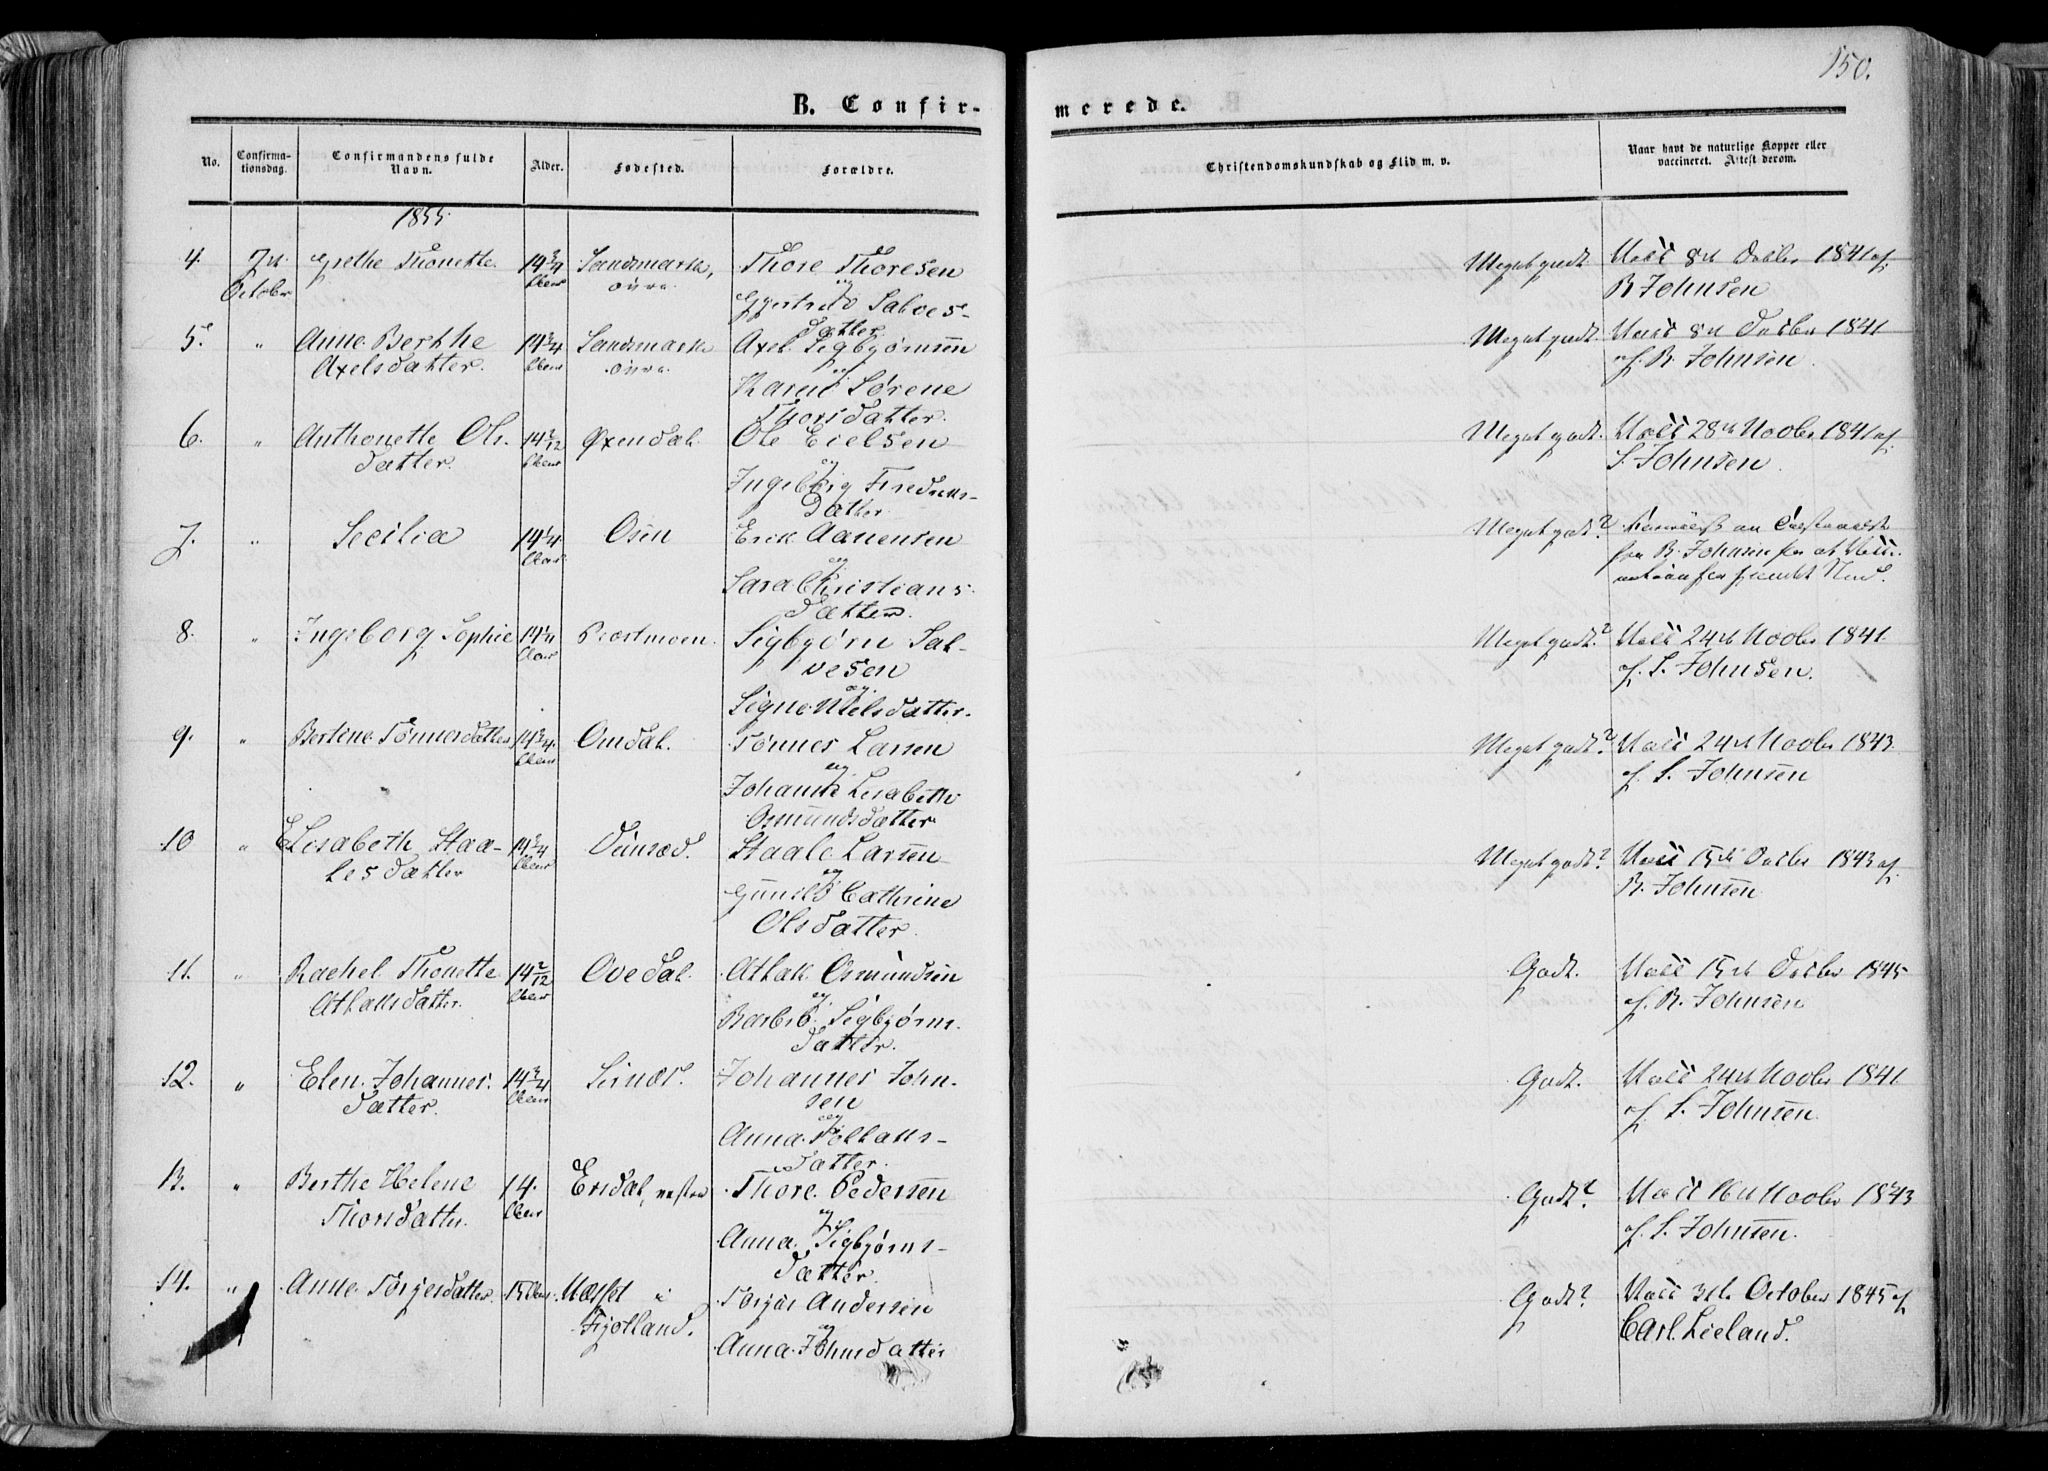 150.
B. Confirmerede.
No. Confirmationsdag. Confirmandens fulde Navn. Alder. Fødested. Forældre. Christendomskundskab og Flid m. v. Naar havt de naturlige Kopper eller vaccineret. Attest derom.
1855.
4. 7de Grethe Thonette. 14 3/4 Sandsmark, Thore Thoresen Meget godt. Vacc 8de Octbr 1841 af
October Aar øvre. og B Johnsen
Gjertrud Salves-
datter
5. " Anne Berthe 14 3/4 Sandsmark Axel Sigbjørnsen Meget godt. Vacc 8de Octbr 1841
Axelsdatter. Aar øvre. og af B. Johnsen
Karen Sørene
Thorsdatter.
6. " Anthonette Ols- 14 Øxendal. Ole Eielsen Meget godt. Vacc 28de Novbr 1841 af
datter. Aar og S. Johnsen.
Ingeborg Fredriks-
datter.
7. " Secilia 14 1/4 Osen Erik Aanensen Meget godt?
Aar og fra B. Johnsen for at Vacci-
Sara Christians-
datter.
8. " Ingeborg Sophie 14 1/4 Præstmoen. Sigbjørn Sal- Meget godt? Vacc 24de Novbr 1841
Aar vesen af S. Johnsen.
og
Signe Nielsdatter.
9. " Bertine Tønnesdatter 14 3/4 Omdal. Tønnes Larsen Meget godt? Vacc 24de Novbr 1843
Aar og af S. Johnsen
Johanne Lisabeth
Osmundsdatter
10 " Elisabeth Staa- 14 3/4 Staale Larsen Meget godt? Vacc 15de Octbr 1843 af
lesdatter Aar og B. Johnsen
Gunild Cathrine
Olsdatter.
11. " Rachel Thonette 14 2/12 Ovedal. Athak Osmundsen Godt. Vacc 15de Octbr 1845
Athaksdatter. Aar og af B. Johnsen
Barbro Sigbjørns-
datter.
12. " Elen Johannes- 14 3/4 Sirnæs. Johannes John- Godt. Vacc 24de Novbr 1841
datter. Aar sen af S. Johnsen.
og
Anna Tollaks-
datter.
13. " Berthe Helene 14. Eisdal, vestre Thore Pedersen Godt? Vacc Novbr 1843
Thorsdatter. Aar og af S. Johnsen.
Anna Sigbjørns-
datter.
14. " Anne Torjersdatter. 15 Aar i Torjer Andersen Godt? Vacc 3de October 1845 af
Fjotland. og Carl Lieland.
Anna Johnsdatter